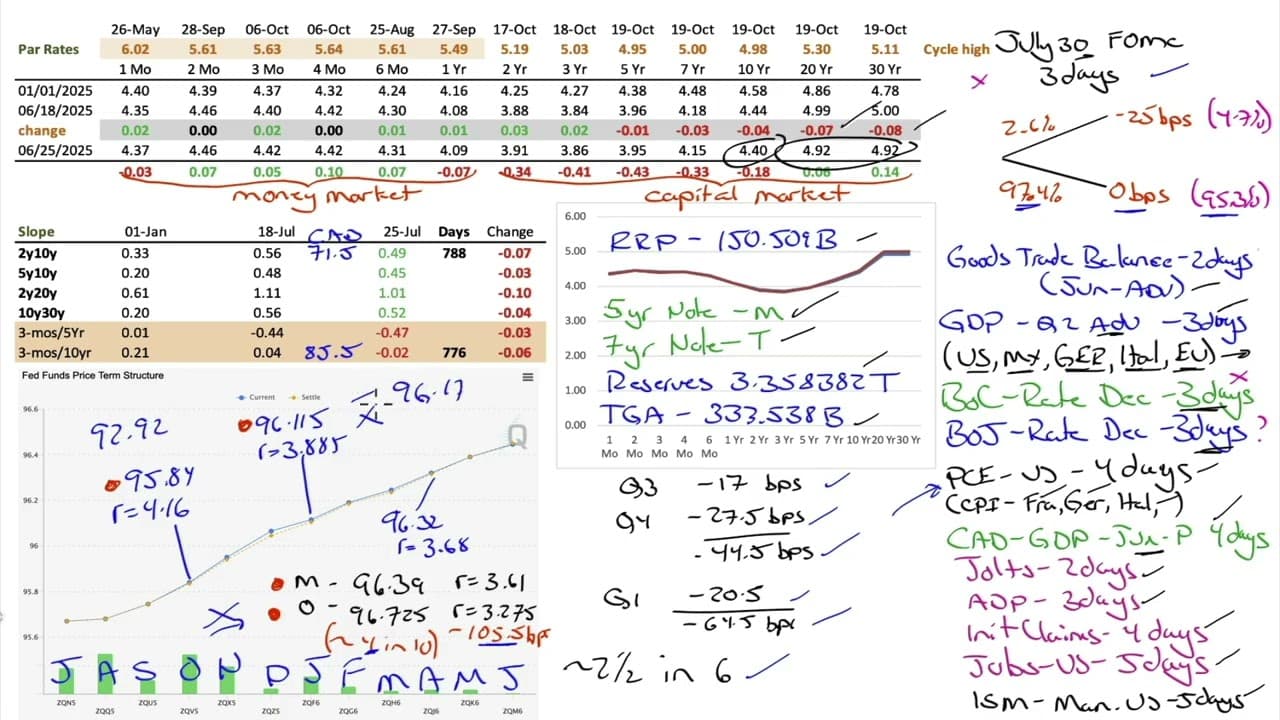 26-May 28-Sep 06-Oct 06-Oct 25-Aug 27-Sep 17-Oct 18-Oct 19-Oct 19-Oct 19-Oct 19-Oct 19-Oct
Par Rates 6.02 5.61 5.63 5.64 5.61 5.49 5.19 5.03 4.95 5.00 4.98 5.30 5.11 Cycle high
1 Mo 2 Mo 3 Mo 4 Mo 6 Mo 1 Yr 2 Yr 3 Yr 5 Yr 7 Yr 10 Yr 20 Yr 30 Yr
01/01/2025 4.40 4.39 4.37 4.32 4.24 4.16 4.25 4.27 4.38 4.48 4.58 4.86 4.78
06/18/2025 4.35 4.46 4.40 4.42 4.30 4.08 3.88 3.84 3.96 4.18 4.44 4.99 5.00
change 0.02 0.00 0.02 0.00 0.01 0.01 0.03 0.02 -0.01 -0.03 -0.04 -0.07 -0.08
06/25/2025 4.37 4.46 4.42 4.42 4.31 4.09 3.91 3.86 3.95 4.15 4.40 4.92 4.92
-0.03 0.07 0.05 0.10 0.07 -0.07 -0.34 -0.41 -0.43 -0.33 -0.18 0.06 0.14
money market capital market
July 30 FOMC
3 days
2.6% -25bps (4.7%)
97.4% 0 bps (95.3%)
Slope 01-Jan 18-Jul CAD 25-Jul Days Change
2y10y 0.33 0.56 71.5 0.49 788 -0.07
5y10y 0.20 0.48 0.45 -0.03
2y20y 0.61 1.11 1.01 -0.10
10y30y 0.20 0.56 0.52 -0.04
3-mos/5Yr 0.01 -0.44 -0.47 -0.03
3-mos/10yr 0.21 0.04 85.5 -0.02 776 -0.06
6.00
5.00
4.00
3.00
2.00
1.00
0.00
RRP - 150.509B
5yr Note - M
7yr Note - T
Reserves 3.358382T
TGA - 333.538B
1 Mo 2 Mo 3 Mo 4 Mo 6 Mo 1 Yr 2 Yr 3 Yr 5 Yr 7 Yr 10 Yr 20 Yr 30 Yr
Fed Funds Price Term Structure
Current Settle
96.6
96.4
96.2
96
95.8
95.6
96.17
92.92
96.115
r=3.885
Q
95.84
r=4.16
96.32
r=3.68
M - 96.39 r=3.61
O - 96.725 r=3.275
(~4 in 10) -105.5bps
J A S O N D J F M A M J
ZQN5 ZQQ5 ZQU5 ZQV5 ZQX5 ZQZ5 ZQF6 ZQG6 ZQH6 ZQJ6 ZQK6 ZQM6
Q3 -17 bps
Q4 -27.5 bps
-44.5 bps
Q1 -20.5
-64.5 bps
~2 1/2 in 6
Goods Trade Balance - 2days
(Jun-ADV)
GDP - Q2 Adv - 3days
(US, MX, GER, Ital, EU)
BoC - Rate Dec - 3days
BOJ - Rate Dec - 3days ?
PCE - US - 4 days
(CPI - Fra, Ger, Ital, )
CAD - GDP - Jun - P 4 days
Jolts - 2days
ADP - 3days
Init Claims - 4 days
Jobs - US - 5days
ISM - Man. US - 5days